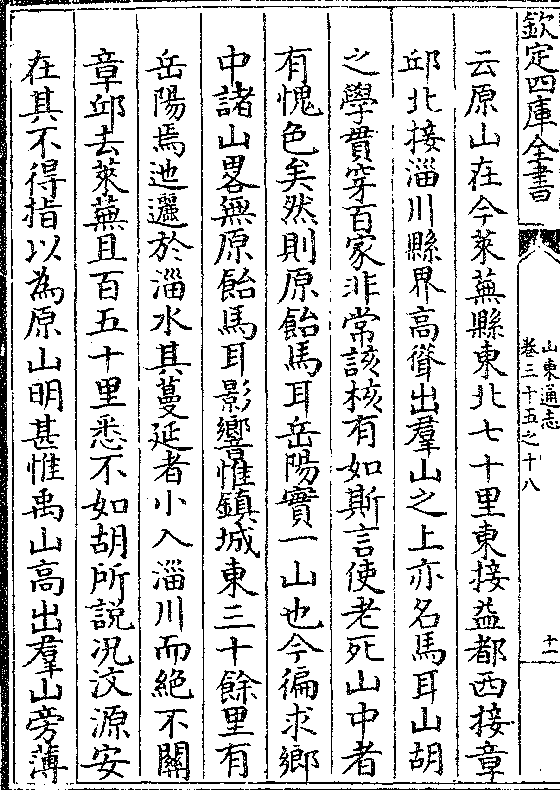 欽定四庫全書
山東通志
卷三十五之十八
十一
云原山在今萊蕪縣東北七十里東接益都西接章
邱北接淄川縣界高聳出羣山之上亦名馬耳山胡
之學貫穿百家非常該核有如斯言使老死山中者
有愧色矣然則原飴馬耳岳陽實一山也今徧求鄉
中諸山畧無原飴馬耳影響惟鎮城東三十餘里有
岳陽焉迆邐於淄水其蔓延者小入淄川而絶不關
章邱去萊蕪且百五十里悉不如胡所説况汶源安
在其不得指以為原山明甚惟禹山高出羣山旁薄